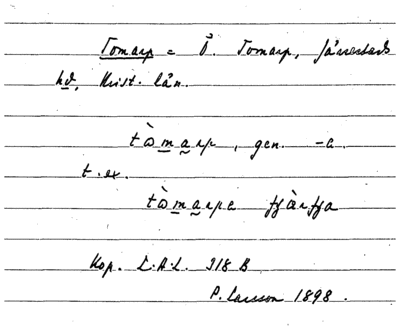 Tomarp = Ö. Tomarp, Järrestads
hd, Krist. län.
tò̱maṟp, gen. -a.
t. ex.
tò̱maṟpa
Kop. L.A.L. 318 B
P. Larsson 1898.